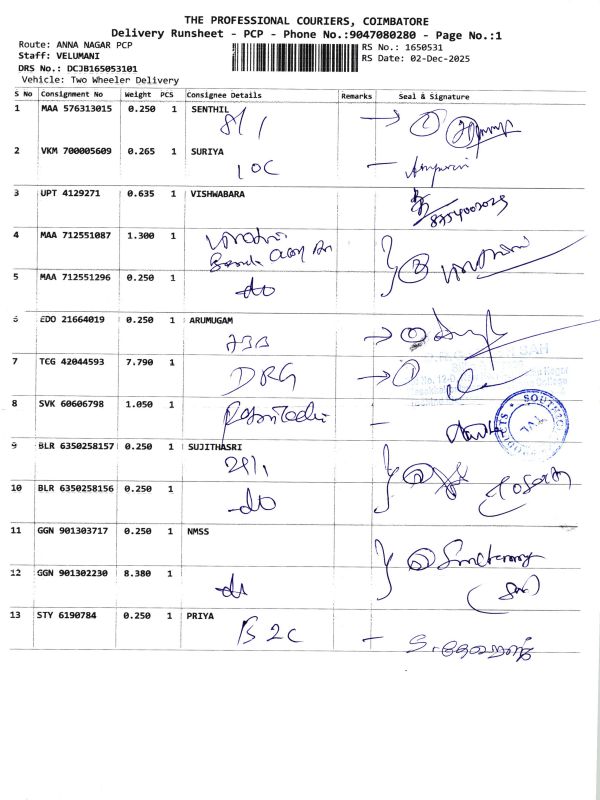 THE PROFESSIONAL COURIERS, COIMBATORE
Delivery Runsheet - PCP - Phone No.:9047080280 - Page No.:1
Route: ANNA NAGAR PCP
Staff: VELUMANI
DRS No.: DCJB165053101
Vehicle: Two Wheeler Delivery
RS No.: 1650531
RS Date: 02-Dec-2025
S No Consignment No Weight PCS Consignee Details Remarks Seal & Signature
1 MAA 576313015 0.250 1 SENTHIL
8/1
2 VKM 700005609 0.265 1 SURIYA
10C
3 UPT 4129271 0.635 1 VISHWABARA
8754003025
4 MAA 712551087 1.300 1
5 MAA 712551296 0.250 1
do
6 EDO 21664019 0.250 1 ARUMUGAM
7 TCG 42044593 7.790 1
DRG
8 SVK 60606798 1.050 1
9 BLR 6350258157 0.250 1 SUJITHASRI
10 BLR 6350258156 0.250 1
do
11 GGN 901303717 0.250 1 NMSS
12 GGN 901302230 8.380 1
do
13 STY 6190784 0.250 1 PRIYA
B2C